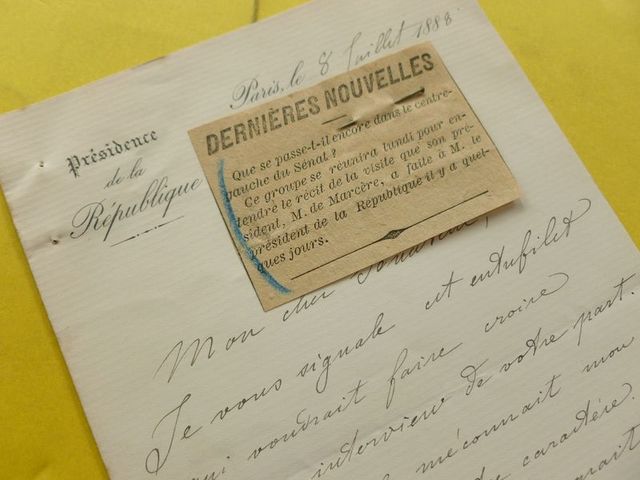 Paris, le 8 Juillet 1888
Présidence
de la
République
DERNIÈRES NOUVELLES
Que se passe-t-il encore dans le centre-
gauche du Sénat ?
Ce groupe se réunira lundi pour en-
tendre le récit de la visite que son pré-
sident, M. de Marcère, a faite à M. le
président de la République il y a quel-
ques jours.
Mon cher
Je vous signale cet entrefilet
qui voudrait faire croire
interview de votre part.
méconnait mon
caractère.